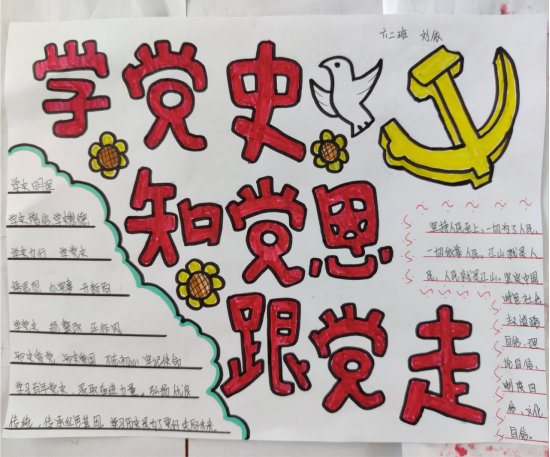 六二班 刘依
学党史
知党思
跟党走
学史明理
学史增信 学史崇德
学史力行 学党史
悟思想 办实事 开新局
学党史 抓整改 正作风
不忘初心 牢记使命
学习百年党史，汲取奋进力量，弘扬优良
传统，传承红色基因，学习历史是为了更好走向未来
坚持人民至上，一切为了人民，
一切依靠人民，江山就是人
民，人民就是江山。坚定中国
特色社会
主义道路
自信、理
论自信、
制度自
信、文化
自信。